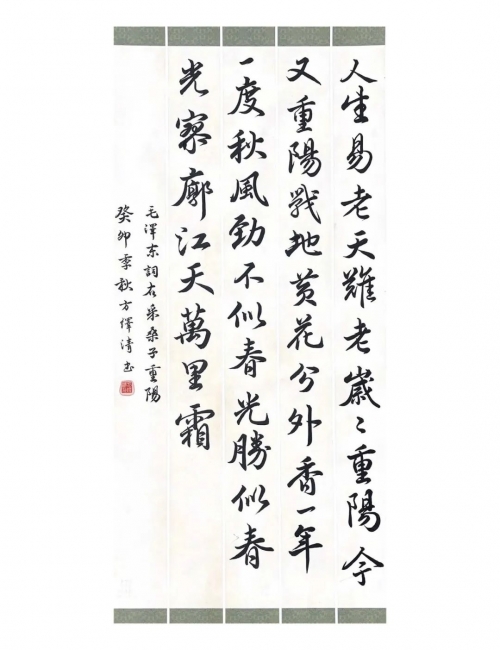 人生易老天難老歲〻重陽今
又重陽戰地黃花分外香一年
一度秋風勁不似春光勝似春
光寥廓江天萬里霜
毛澤東詞右采桑子重陽
癸卯季秋方清書